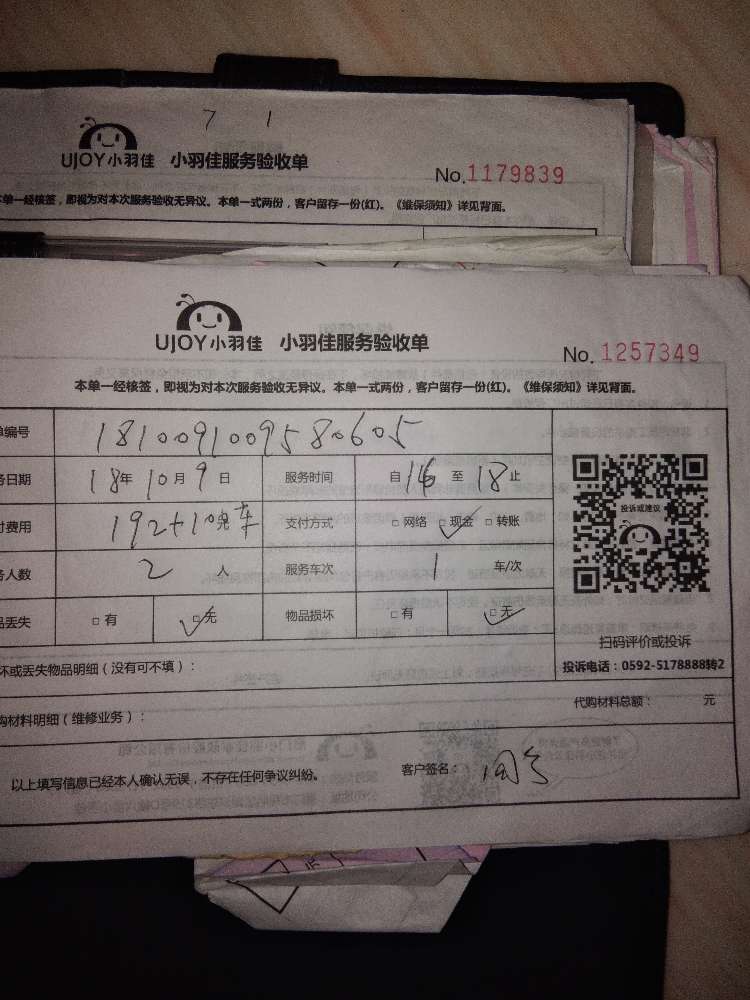 7 1
UJOY小羽佳 小羽佳服务验收单
No.1179839
本单一经核签，即视为对本次服务验收无异议。本单一式两份，客户留存一份(红)。《维保须知》详见背面。
UJOY小羽佳 小羽佳服务验收单
No. 1257349
本单一经核签，即视为对本次服务验收无异议。本单一式两份，客户留存一份(红)。《维保须知》详见背面。
单编号 1810091009580605
务日期 18年10月9日 服务时间 自16至18止
付费用 192+10 车 支付方式 □网络 □现金 □转账
务人数 2人 服务车次 1车/次
品丢失 □有 □无 物品损坏 □有 □无
投诉或建议
扫码评价或投诉
投诉电话：0592-5178888转2
坏或丢失物品明细（没有可不填）：
代购材料总额： 元
购材料明细（维修业务）：
以上填写信息已经本人确认无误，不存在任何争议纠纷。 客户签名：